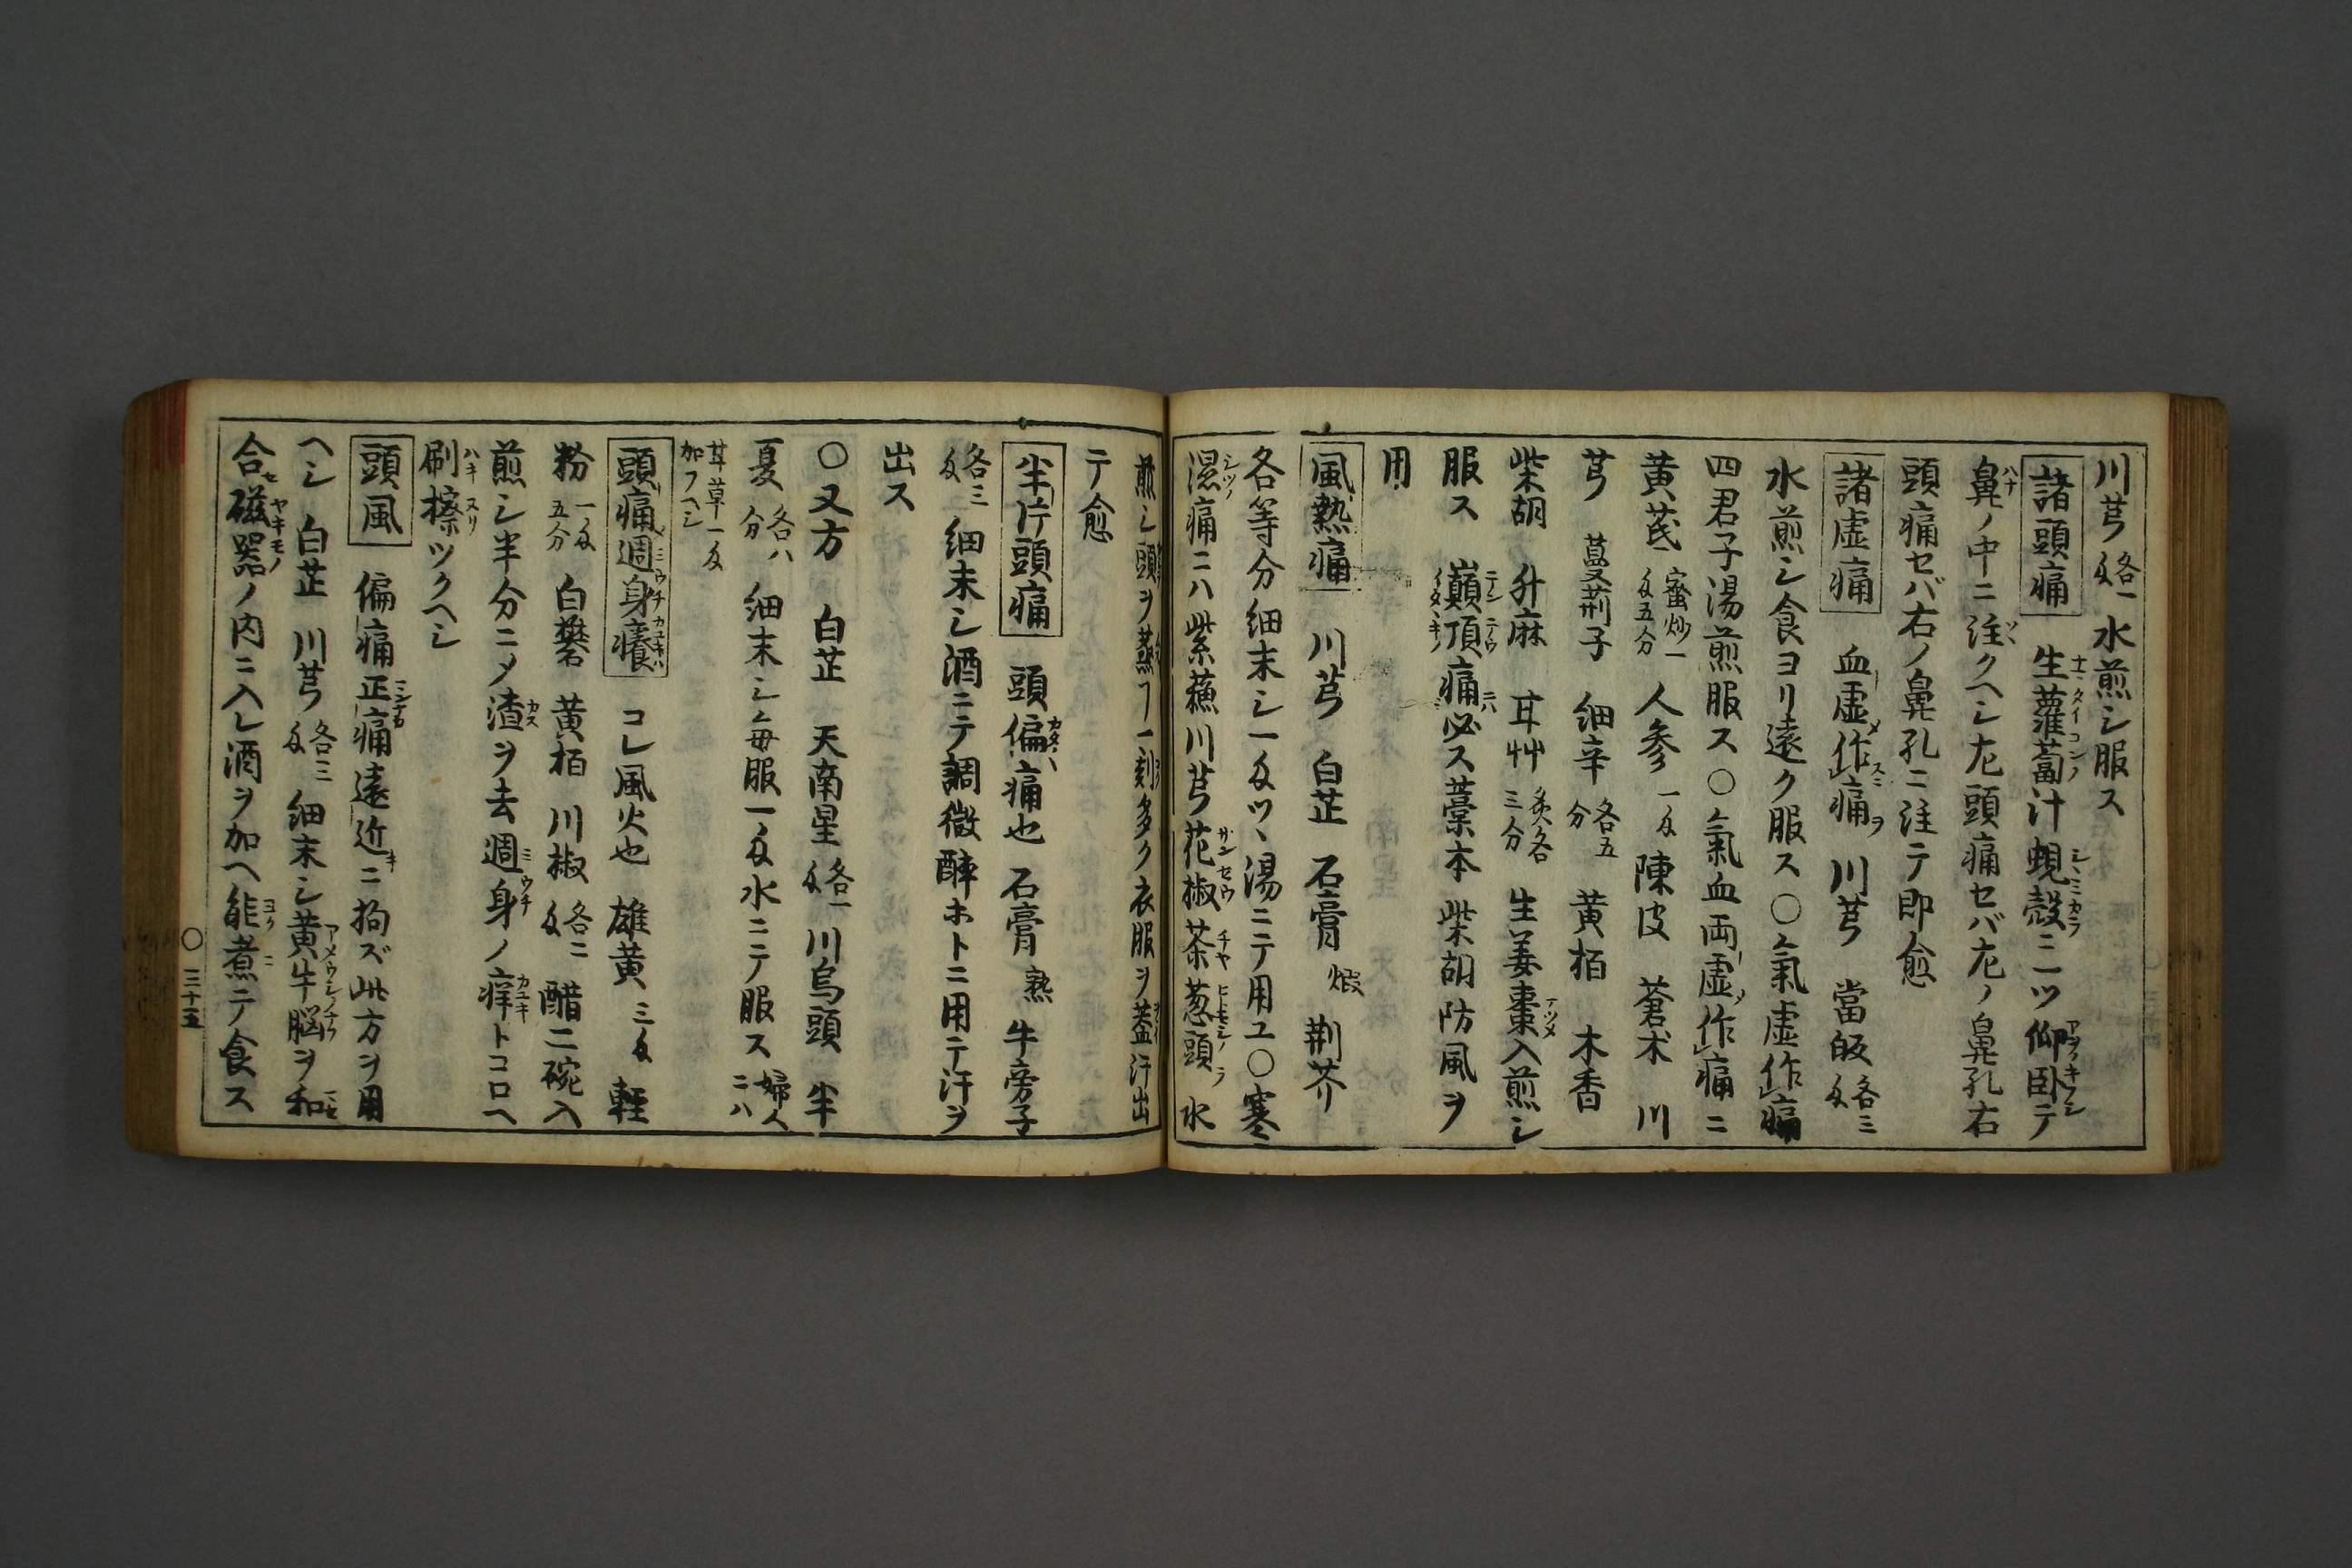 川芎各一匁水煎シ服ス
諸頭痛 生蘿蔔汁蜆殻ニ二ツ仰臥テ
鼻ノ中ニ注クヘシ左頭痛セバ左ノ鼻孔右
頭痛セバ右ノ鼻孔ニ注テ即愈
諸虚痛 血虚作痛 川芎 當皈各三匁
水煎シ食ヨリ遠ク服ス○氣虚作痛
四君子湯煎服ス○氣血両虚作痛ニ
黄芪蜜炒一匁五分 人参一匁 陳皮 蒼朮 川
芎 蔓荊子 細辛各五分 黄栢 木香
柴胡 升麻 甘艸炙各三分 生姜棗入煎シ
服ス 巓頂痛必ス藁本 柴胡 防風ヲ
用
風熱痛 川芎 白芷 石膏煆 荊芥
各等分細末シ一匁ツヽ湯ニテ用ユ○寒
濕痛ニハ紫蘓川芎花椒茶葱頭 水
煎シ頭ヲ蒸フ一刻多ク衣服ヲ蓋汗出
テ愈
半片頭痛 頭偏痛也 石膏熟 牛旁子
各三匁 細末シ酒ニテ調微醉ホトニ用テ汗ヲ
出ス
○又方 白芷 天南星各一匁 川烏頭 半
夏各八分 細末シ每服一匁水ニテ服ス婦人ニハ
甘草一匁加フヘシ
頭痛週身癢 コレ風火也 雄黄三匁 軽
粉一匁五分 白礬 黄栢 川椒各二匁 醋二碗入
煎シ半分ニメ渣ヲ去週身ノ痒トコロヘ
刷擦ツクヘシ
頭風 偏痛正痛遠近ニ拘ズ此方ヲ用
ヘシ 白芷 川芎各三匁 細末シ黄牛脳ヲ和
合磁器ノ内ニ入レ酒ヲ加ヘ能煮テ食ス
○三十五